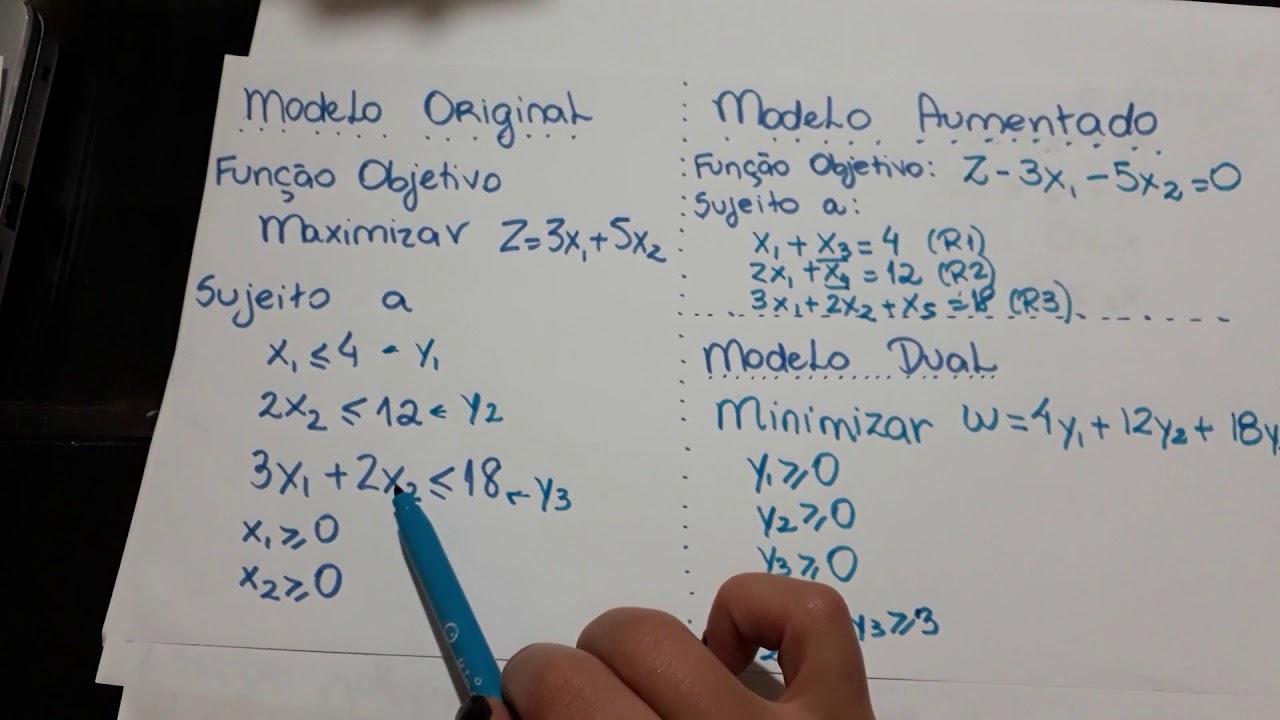 Modelo Original
Função Objetivo
Maximizar Z=3x₁+5x₂
Sujeito a
x₁ ≤ 4 - y₁
2x₂ ≤ 12 ← y₂
3x₁ + 2x₂ ≤ 18 ← y₃
x₁ ≥ 0
x₂ ≥ 0
Modelo Aumentado
Função Objetivo: Z - 3x₁ - 5x₂ = 0
Sujeito a:
x₁ + x₃ = 4 (R1)
2x₁ + x₄ = 12 (R2)
3x₁ + 2x₂ + x₅ = 18 (R3)
Modelo Dual
Minimizar W = 4y₁ + 12y₂ + 18y
y₁ ≥ 0
y₂ ≥ 0
y₃ ≥ 0
y₃ ≥ 3